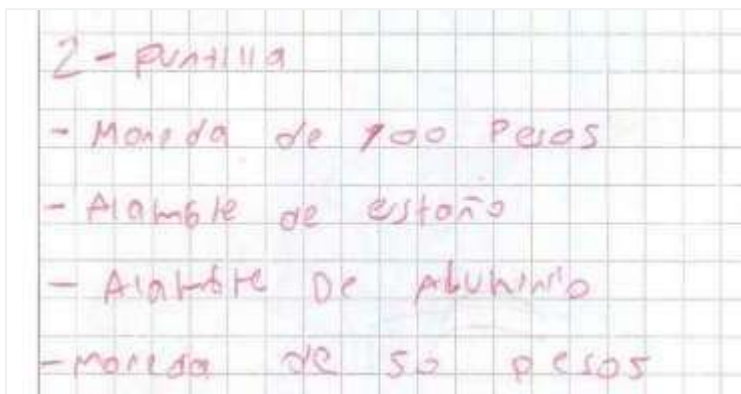 2 - puntilla
- Moneda de 100 Pesos
- Alambre de estaño
- Alambre De Aluminio
- moneda de 50 pesos